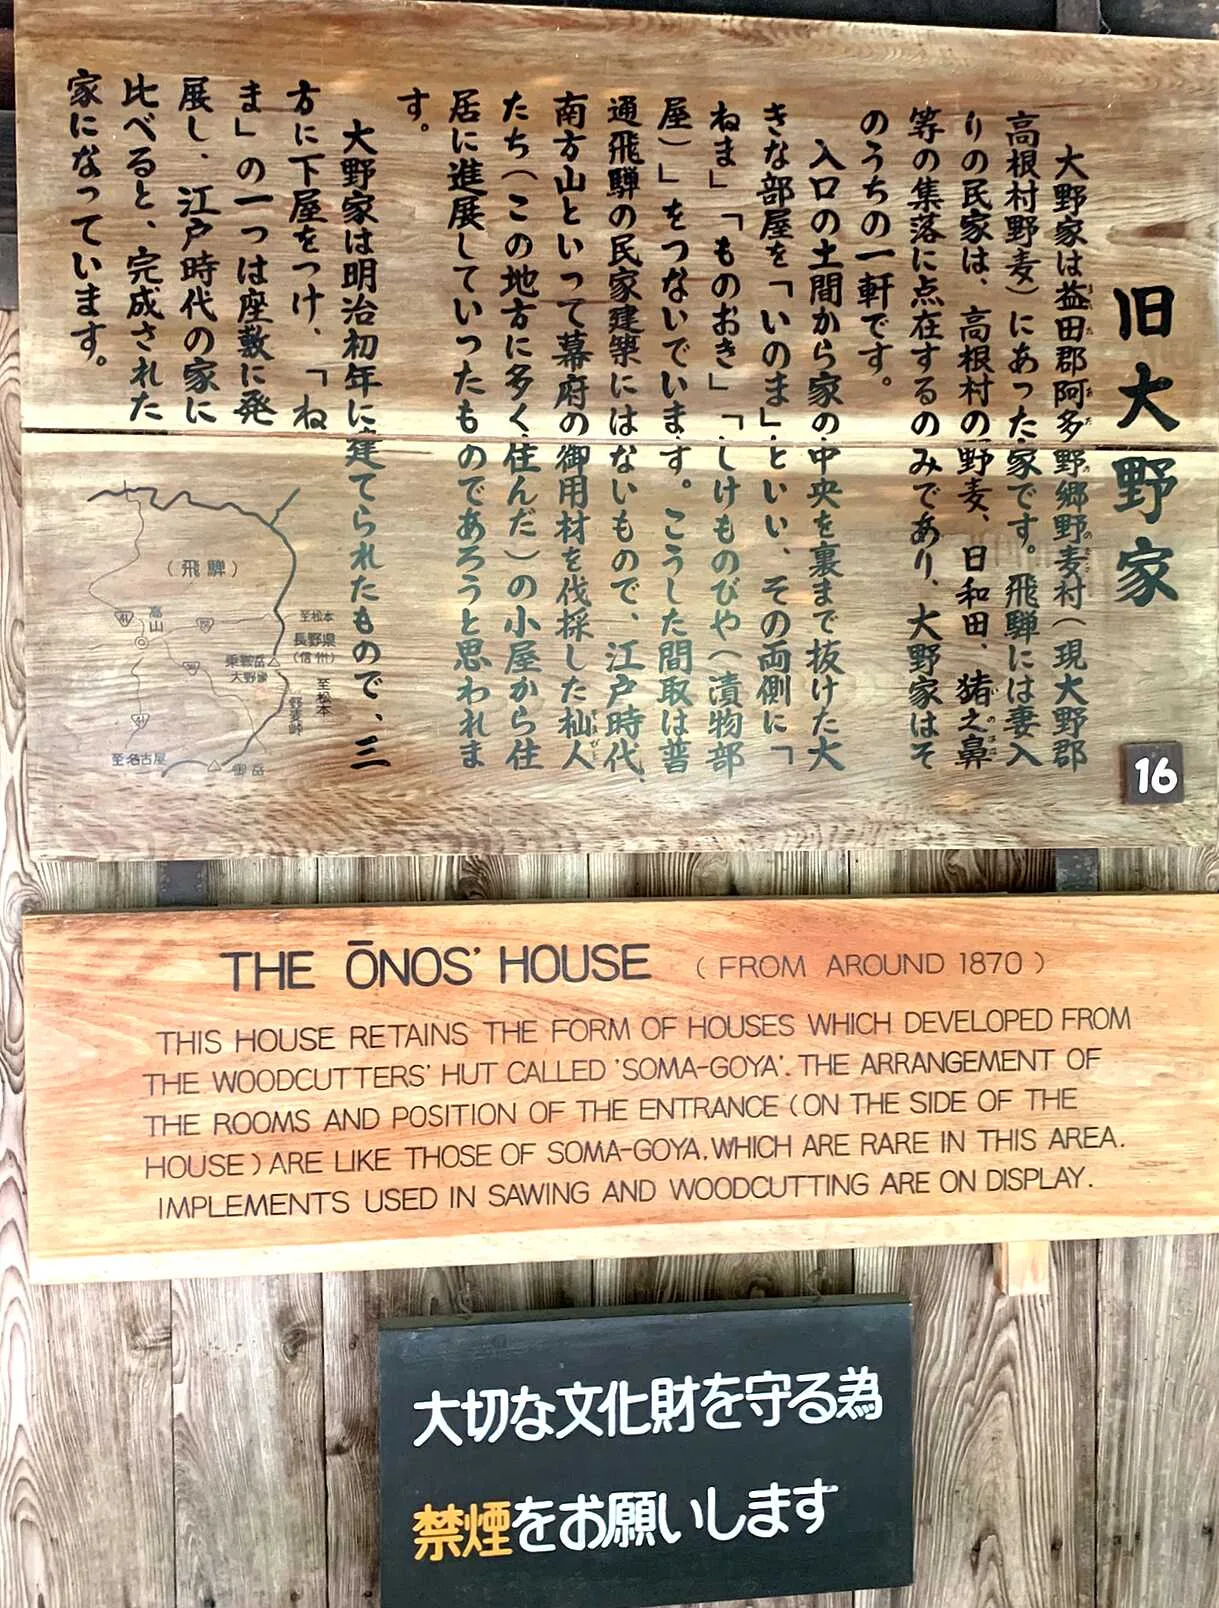 旧大野家
大野家は益田郡阿多野郷野麦村(現大野郡
高根村野麦)にあった家です。飛騨には妻入
りの民家は、高根村の野麦、日和田、猪之鼻
等の集落に点在するのみであり、大野家はそ
のうちの一軒です。
入口の土間から家の中央を裏まで抜けた大
きな部屋を「いのま」といい、その両側に「
ねま」「ものおき」「しけものびや(漬物部
屋)」をつないでいます。こうした間取は普
通飛騨の民家建築にはないもので、江戸時代、
南方山といって幕府の御用材を伐採した杣人
たち(この地方に多く住んだ)の小屋から住
居に進展していったものであろうと思われま
す。
大野家は明治初年に建てられたもので、三
方に下屋をつけ、「ね
ま」の一つは座敷に発
展し、江戸時代の家に
比べると、完成された
家になっています。
(飛騨)
高山
41
158
至松本
長野県
(信州)
乗鞍岳
大野家
至松本
野麦峠
41
至名古屋
御岳
16
THE ŌNOS' HOUSE (FROM AROUND 1870)
THIS HOUSE RETAINS THE FORM OF HOUSES WHICH DEVELOPED FROM
THE WOODCUTTERS' HUT CALLED 'SOMA-GOYA'. THE ARRANGEMENT OF
THE ROOMS AND POSITION OF THE ENTRANCE (ON THE SIDE OF THE
HOUSE) ARE LIKE THOSE OF SOMA-GOYA. WHICH ARE RARE IN THIS AREA.
IMPLEMENTS USED IN SAWING AND WOODCUTTING ARE ON DISPLAY.
大切な文化財を守る為
禁煙をお願いします